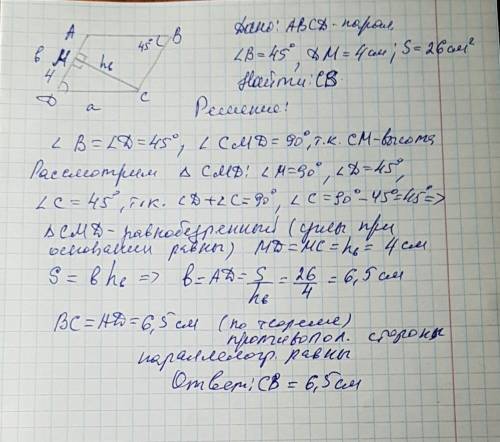 Дано: ABCD-парал.
∠B=45°, DM=4см; S=26см²
Найти: CB
Решение:
A
B
45°
M
в
4
hв
D
a
C
∠B=∠D=45°, ∠CMD=90°, т.к. CM-высота
Рассмотрим △CMD: ∠M=90°, ∠D=45°,
∠C=45°, т.к. ∠D+∠C=90°, ∠C=90°-45°=45° =>
△CMD-равнобедренный (углы при
основании равны) MD=MC=hв=4см
S=вhв => в=AD=S/hв=26/4=6,5см
BC=AD=6,5см (по теореме)
противопол. стороны
параллелогр. равны
Ответ: CB=6,5см